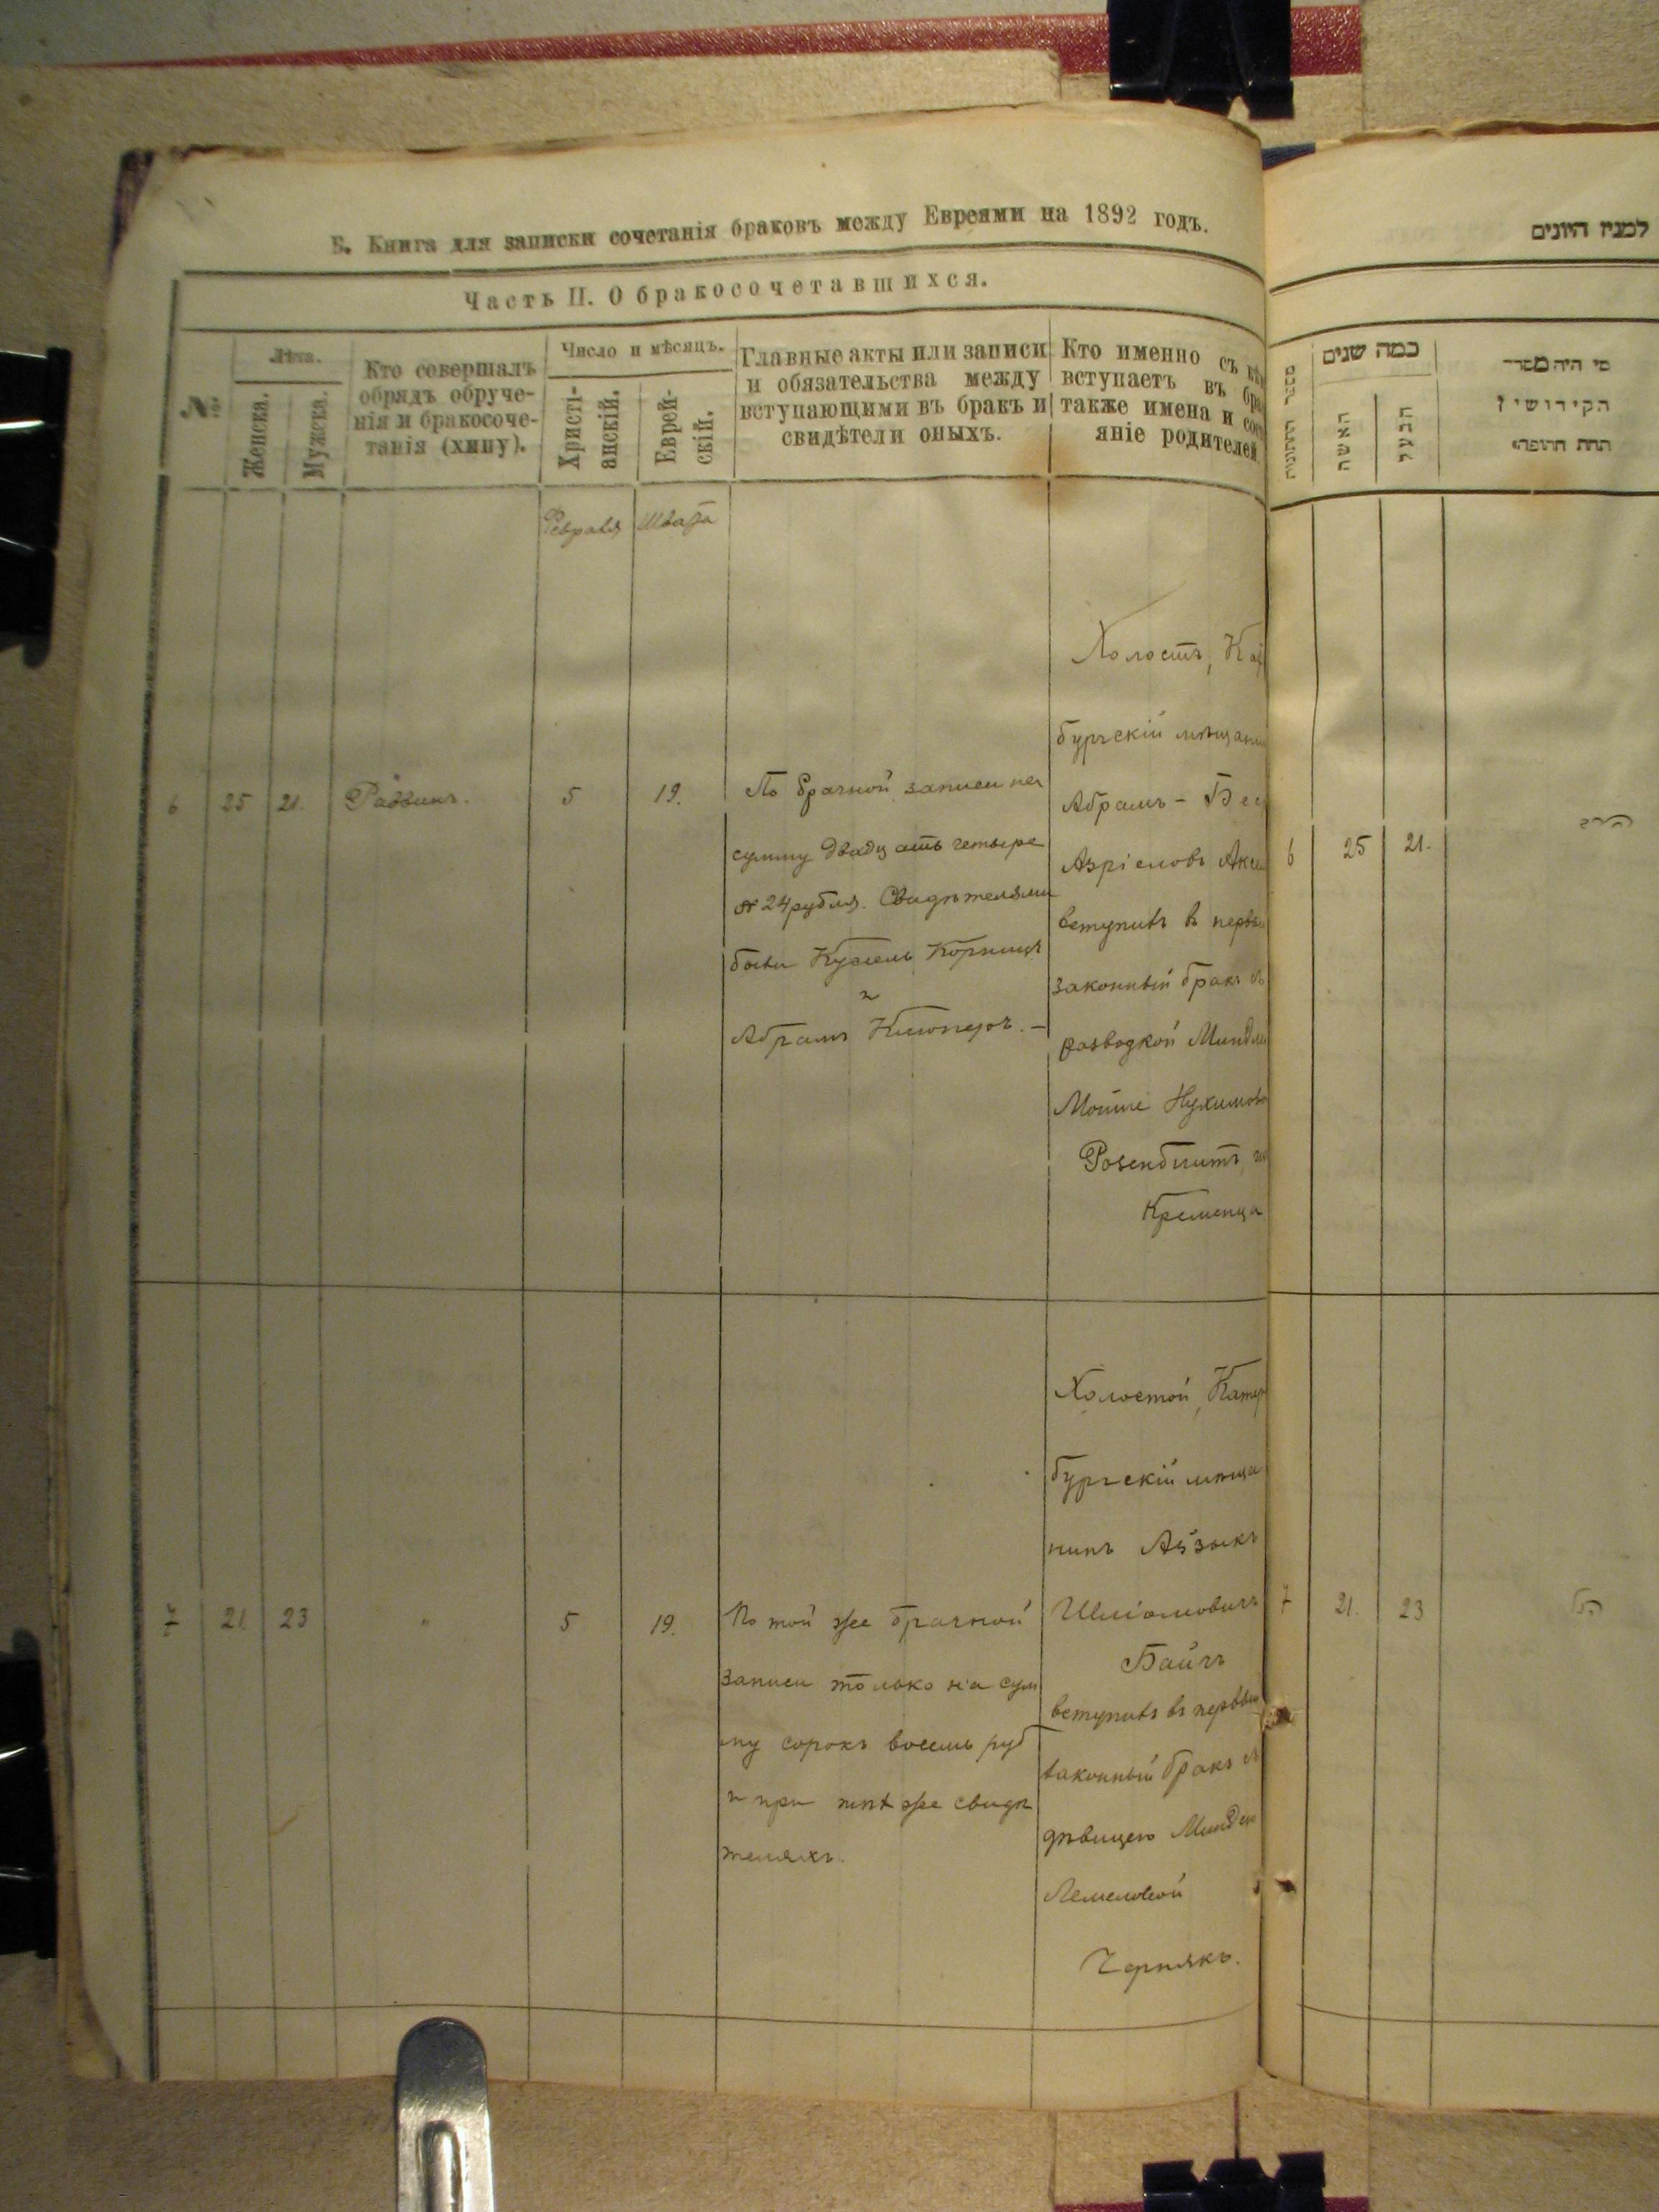 Б. Книга для записки сочетанія браковъ между Евреями на 1892 годъ.
Часть II. О бракосочетавшихся.
№
Лѣта.
Женска.
Мужска.
Кто совершалъ
обрядъ обруче-
нія и бракосоче-
танія (хипу).
Число и мѣсяцъ.
Христі-
анскій.
Еврей-
скій.
Главные акты или записи
и обязательства между
вступающими въ бракъ и
свидѣтели оныхъ.
Кто именно съ
вступаетъ въ
также имена и
яніе родителей.
Февраля Швата
6 25 21. Раввинъ. 5 19.
По брачной записи на
сумму двадцать четыре
24 рубля. Свидѣтелями
были Кусель Корницъ
и
Абрамъ
Холостъ,
бургскій мѣщани
Абрамъ-
Азріеловъ
вступилъ въ первы
законный бракъ съ
разводкой
Нухимово
Розенблитъ,
Кременца
7 21. 23 " 5 19.
По той же брачной
записи только на сум
му сорокъ восемь руб
и при тѣхже свидѣ
теляхъ.
Холостой, Катер
бургскій мѣща
нинъ Айзыкъ
Шліомовичъ
вступилъ въ первый
законный бракъ съ
дѣвицею
Лемеловой
Чернякъ.
למנין היונים
מספר החתונות
כמה שנים
האשה
הבעל
מי היה מסדר
הקידושין
תחת החופה
6 25 21.
הרב
7 21. 23
הנ"ל